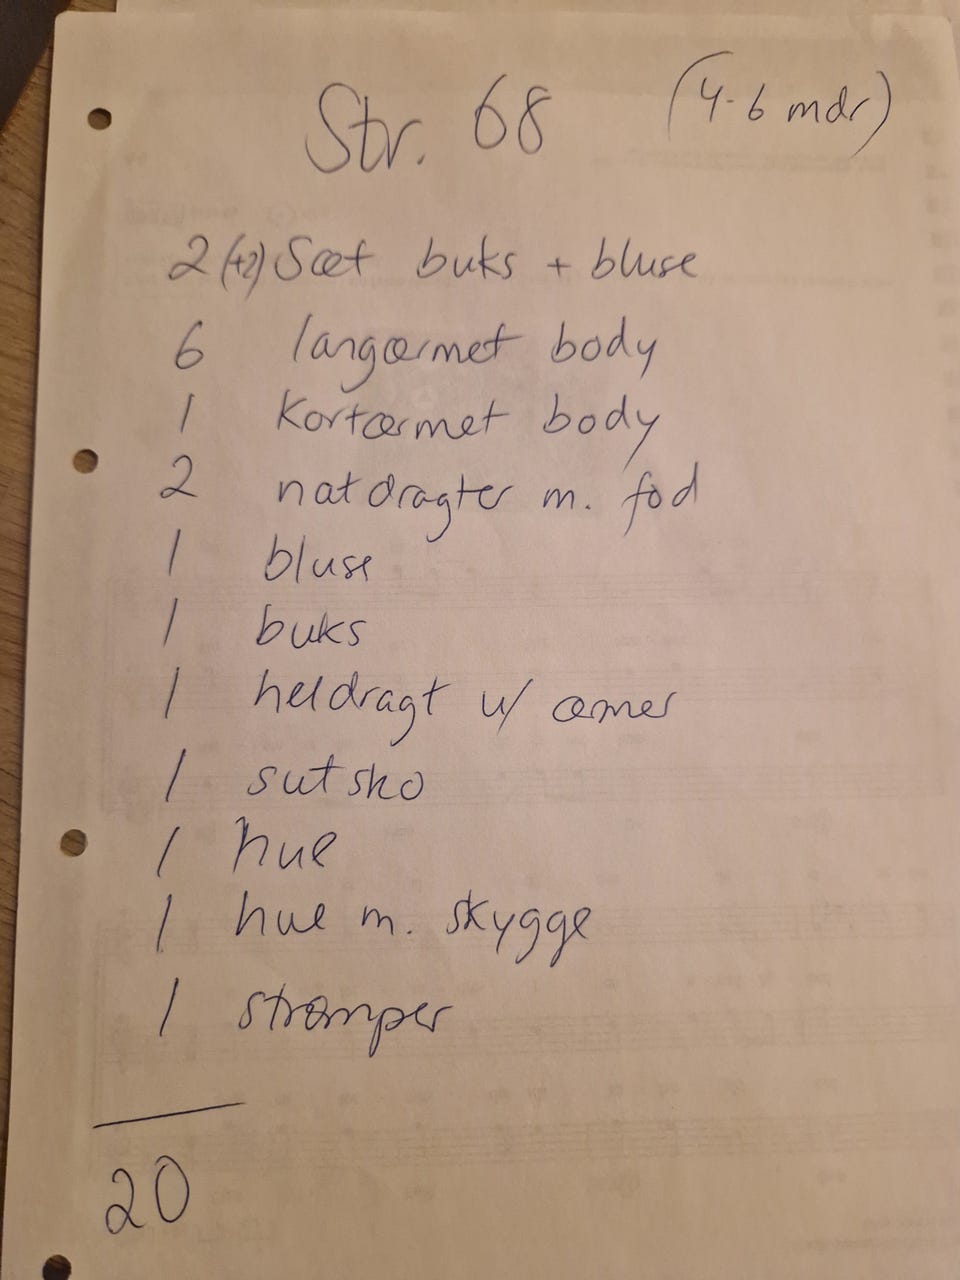 Str. 68 (4-6 mdr)
2 (+2) Sæt buks + bluse
6 langærmet body
1 Kortærmet body
2 natdragter m. fod
1 bluse
1 buks
1 heldragt u/ ærmer
1 sutsko
1 hue
1 hue m. skygge
1 strømper
20